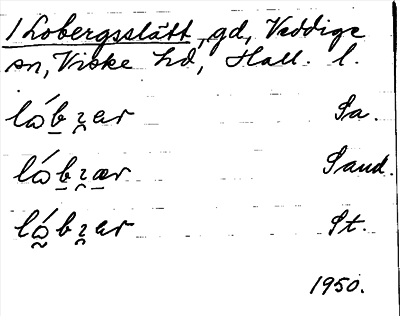 1 Lobergsslätt, gd, Veddige
sn, Viske hd, Hall. l.
lób̠ʐ̥ar Sa.
lób̠ʐ̥a̠r Sand.
ló̰bʐ̥ar St.
1950.